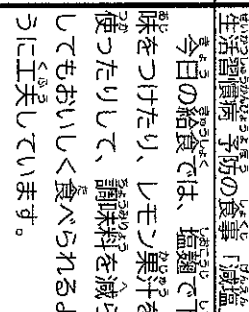 生活習慣病 予防の食事「減塩
今日の給食では、塩麹で下
味をつけたり、レモン果汁を
使ったりして、調味料を減ら
してもおいしく食べられるよ
うに工夫しています。